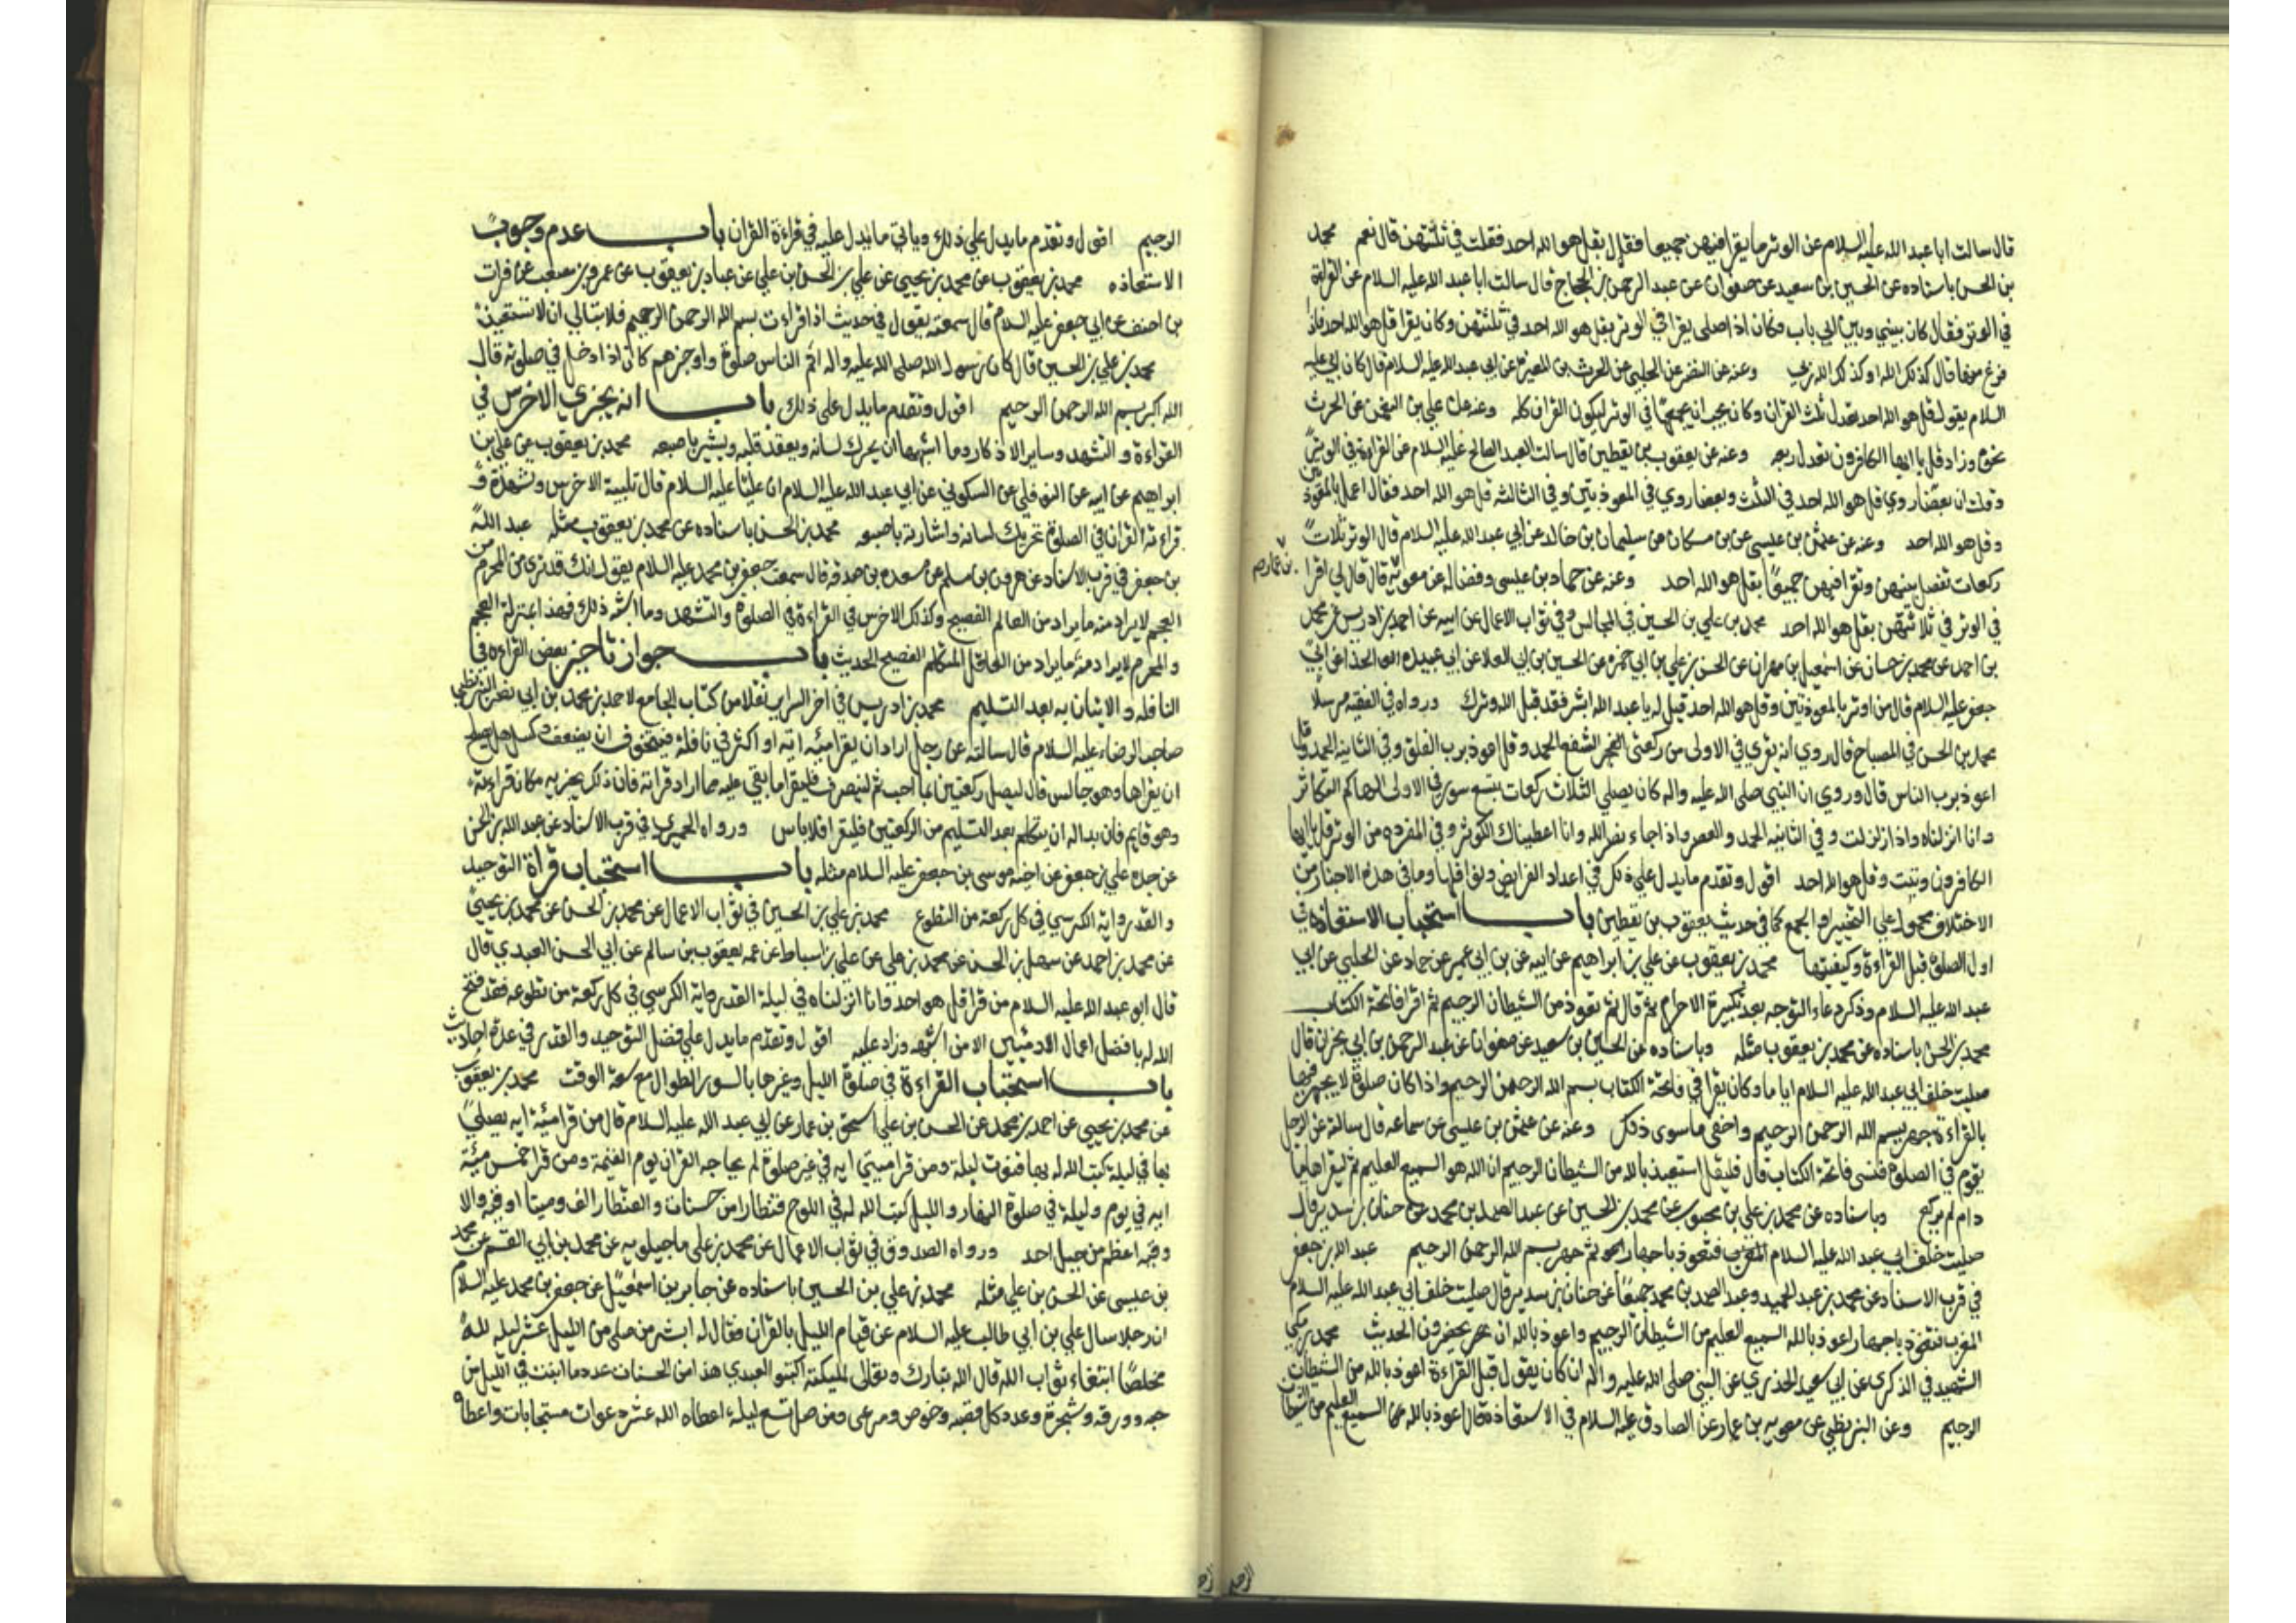 قال سالت ابا عبد الله عليه السلام عن الوتر ما يقرا فيهن جميعا فقال بقل هو الله احد فقلت في ثلثتهن قال نعم محمد
بن الحسن باسناده عن الحسين بن سعيد عن صفوان عن عبد الرحمن بن الحجاج قال سالت ابا عبد الله عليه السلام عن القراءة
في الوتر فقال كان بيني وبين ابي باب وكان اذا صلى يقرا في الوتر بقل هو الله احد في ثلثتهن وكان يقرا قل هو الله احد فاذا
فرغ منها قال كذلك الله او كذلك الله ربي وعنه عن النضر عن الحلبي عن الحرث بن المغيره عن ابي عبد الله عليه السلام قال كان ابي عليه
السلام يقول قل هو الله احد تعدل ثلث القران وكان يحب ان يجمعها في الوتر ليكون القران كله وعنه عن علي بن النعمن عن الحرث
نحوه وزاد قل يا ايها الكافرون تعدل ربعه وعنه عن يعقوب بن يقطين قال سالت العبد الصالح عليه السلام عن القراءة في الوتر
وقلت ان بعضا روي قل هو الله احد في الثلث وبعضا روي في المعوذتين وفي الثالثه قل هو الله احد فقال اعمل بالمعوذتين
وقل هو الله احد وعنه عن عثمن بن عيسى عن بن مسكان عن سليمان بن خالد عن ابي عبد الله عليه السلام قال الوتر ثلاث
ركعات تفصل بينهن وتقرا فيهن جميعا بقل هو الله احد وعنه عن حماد بن عيسى وفضاله عن معويه بن عمار قال قال لي اقرا
في الوتر في ثلاثتهن بقل هو الله احد محمد بن علي بن الحسين في المجالس وفي ثواب الاعمال عن ابيه عن احمد بن ادريس عن محمد
بن احمد عن محمد بن حسان عن اسمعيل بن مهران عن الحسن بن علي بن ابي حمزه عن الحسين بن ابي العلا عن ابي عبيده الحذا عن ابي
جعفر عليه السلام قال من اوتر بالمعوذتين وقل هو الله احد قيل له يا عبد الله ابشر فقد قبل الله وترك ورواه في الفقيه مرسلا
محمد بن الحسن في المصباح قال روي انه يقرى في الاولى من ركعتي الشفع الحمد وقل اعوذ برب الفلق وفي الثانيه الحمد وقل
اعوذ برب الناس قال وروي ان النبي صلى الله عليه واله كان يصلي الثلاث ركعات بتسع سور في الاولى الهاكم التكاثر
وانا انزلناه واذا زلزلت وفي الثانيه الحمد والعصر واذا جاء نصر الله وانا اعطيناك الكوثر وفي المفرده من الوتر قل يا ايها
الكافرون وتبت وقل هو الله احد اقول وتقدم ما يدل على ذلك في اعداد الفرايض ونوافلها وما في هذه الاخبار من
الاختلاف محمول على التخيير او الجمع كما في حديث يعقوب بن يقطين باب استحباب الاستعاذه في
اول الصلوة قبل القراءة وكيفيتها محمد بن يعقوب عن علي بن ابراهيم عن ابيه عن بن ابي عمير عن حماد عن الحلبي عن ابي
عبد الله عليه السلام وذكر دعاء التوجه بعد تكبيرة الاحرام ثم قال ثم تعوذ من الشيطان الرجيم ثم اقرا فاتحة الكتاب
محمد بن الحسن باسناده عن محمد بن يعقوب مثله وباسناده عن الحسين بن سعيد عن صفوان عن عبد الرحمن بن ابي نجران قال
صليت خلف ابي عبد الله عليه السلام اياما وكان يقرا في فاتحة الكتاب بسم الله الرحمن الرحيم واذا كان صلوة لا يجهر فيها
بالقراءة جهر ببسم الله الرحمن الرحيم واخفى ما سوى ذلك وعنه عن عثمن بن عيسى عن سماعه قال سالته عن الرجل
يقوم في الصلوة فنسى فاتحة الكتاب قال فليقل استعيذ بالله من الشيطان الرجيم ان الله هو السميع العليم ثم ليقراها ما
دام لم يركع وباسناده عن محمد بن علي بن محبوب عن محمد بن الحسين عن عبد الصمد بن محمد عن حنان بن سدير قال
صليت خلف ابي عبد الله عليه السلام المغرب فتعوذ باجهار ثم جهر ببسم الله الرحمن الرحيم عبد الله بن جعفر
في قرب الاسناد عن محمد بن عبد الحميد وعبد الصمد بن محمد جميعا عن حنان بن سدير قال صليت خلف ابي عبد الله عليه السلام
المغرب فتعوذ باجهار اعوذ بالله السميع العليم من الشيطان الرجيم واعوذ بالله ان يحضرون الحديث محمد بن مكي
الشهيد في الذكرى عن ابي سعيد الخدري عن النبي صلى الله عليه واله انه كان يقول قبل القراءة اعوذ بالله من الشيطان
الرجيم وعن البزنطي عن معويه بن عمار عن الصادق عليه السلام في الاستعاذة قال اعوذ بالله السميع العليم من الشيطان
بن عمار صح
الرجيم
الرجيم اقول وتقدم ما يدل على ذلك وياتي ما يدل عليه في قراءة القران باب عدم وجوب
الاستعاذه محمد بن يعقوب عن محمد بن يحيى عن علي بن الحسن بن علي عن عباد بن يعقوب عن عمرو بن مصعب عن فرات
بن احنف عن ابي جعفر عليه السلام قال سمعته يقول في حديث اذا قراءت بسم الله الرحمن الرحيم فلا تبالي ان لا تستعيذ
محمد بن علي بن الحسين قال كان رسول الله صلى الله عليه واله اتم الناس صلوة واوجزهم كان اذا دخل في صلوته قال
الله اكبر بسم الله الرحمن الرحيم اقول وتقدم ما يدل على ذلك باب انه يجزي الاخرس في
القراءة والتشهد وساير الاذكار وما اشبهها ان يحرك لسانه ويعقد قلبه ويشير باصبعه محمد بن يعقوب عن علي بن
ابراهيم عن ابيه عن النوفلي عن السكوني عن ابي عبد الله عليه السلام ان عليا عليه السلام قال تلبية الاخرس وتشهده و
قراءته القران في الصلوة تحريك لسانه واشارته باصبعه محمد بن الحسن باسناده عن محمد بن يعقوب مثله عبد الله
بن جعفر في قرب الاسناد عن هرون بن مسلم عن مسعده بن صدقه قال سمعت جعفر بن محمد عليه السلام يقول انك قد ترى من المحرم من
العجم لا يراد منه ما يراد من العالم الفصيح وكذلك الاخرس في القراءة في الصلوة والتشهد وما اشبه ذلك فهذا بمنزلة العجم
والمحرم لا يراد منه ما يراد من العاقل المتكلم الفصيح الحديث باب جواز تاخير بعض القراءه في
النافله والاتيان به بعد التسليم محمد بن ادريس في اخر السراير نقلا من كتاب الجامع لاحمد بن محمد بن ابي نصر البزنطي
صاحب الرضا عليه السلام قال سالته عن رجل اراد ان يقرا مئة اية او اكثر في نافلة فيتخوف ان يضعف وكسل هل يصلح
ان يقراها وهو جالس قال ليصل ركعتين بما احب ثم لينصرف فليقرا ما بقي عليه مما اراد قراته فان ذلك يجزيه مكان قراءته
وهو قايم فان بدا له ان يتكلم بعد التسليم من الركعتين فليقرا فلا باس ورواه الحميري في قرب الاسناد عن عبد الله بن الحسن
عن جده علي بن جعفر عن اخيه موسى بن جعفر عليه السلام مثله باب استحباب قراة التوحيد
والقدر واية الكرسي في كل ركعة من التطوع محمد بن علي بن الحسين في ثواب الاعمال عن محمد بن الحسن عن محمد بن يحيى
عن محمد بن احمد عن سهل بن الحسن عن محمد بن علي عن علي بن اسباط عن عمه يعقوب بن سالم عن ابي الحسن العبدي قال
قال ابو عبد الله عليه السلام من قرا قل هو الله احد وانا انزلناه في ليلة القدر واية الكرسي في كل ركعة من تطوعه فقد فتح
الله له بافضل اعمال الادميين الا من اشبهه وزاد عليه اقول وتقدم ما يدل على فضل التوحيد والقدر في عدة احاديث
باب استحباب القراءة في صلوة الليل وغيرها بالسور الطوال مع سعة الوقت محمد بن يعقوب
عن محمد بن يحيى عن احمد بن محمد عن الحسن بن علي عن اسحق بن عمار عن ابي عبد الله عليه السلام قال من قرا مئة اية يصلي
بها في ليلة كتب الله له بها قنوت ليلة ومن قرا مئتي اية في غير صلوة لم يحاجه القران يوم القيمة ومن قرا خمس مئة
اية في يوم وليلة في صلوة النهار والليل كتب الله له في اللوح قنطارا من حسنات والقنطار الف وميتا اوقيه والا
وقيه اعظم من جبل احد ورواه الصدوق في ثواب الاعمال عن محمد بن علي ماجيلويه عن محمد بن ابي القسم عن محمد
بن عيسى عن الحسن بن علي مثله محمد بن علي بن الحسين باسناده عن جابر بن اسمعيل عن جعفر بن محمد عليه السلام
ان رجلا سال علي بن ابي طالب عليه السلام عن قيام الليل بالقران فقال له ابشر من صلى من الليل عشر ليله لله
مخلصا ابتغاء ثواب الله قال الله تبارك وتعالى لمليكته اكتبوا لعبدي هذا من الحسنات عدد ما انبت في الليل من
حبه وورقه وشجرة وعدد كل قصبه وخوص ومرعى ومن صلى تسع ليله اعطاه الله عشر دعوات مستجابات واعطاه